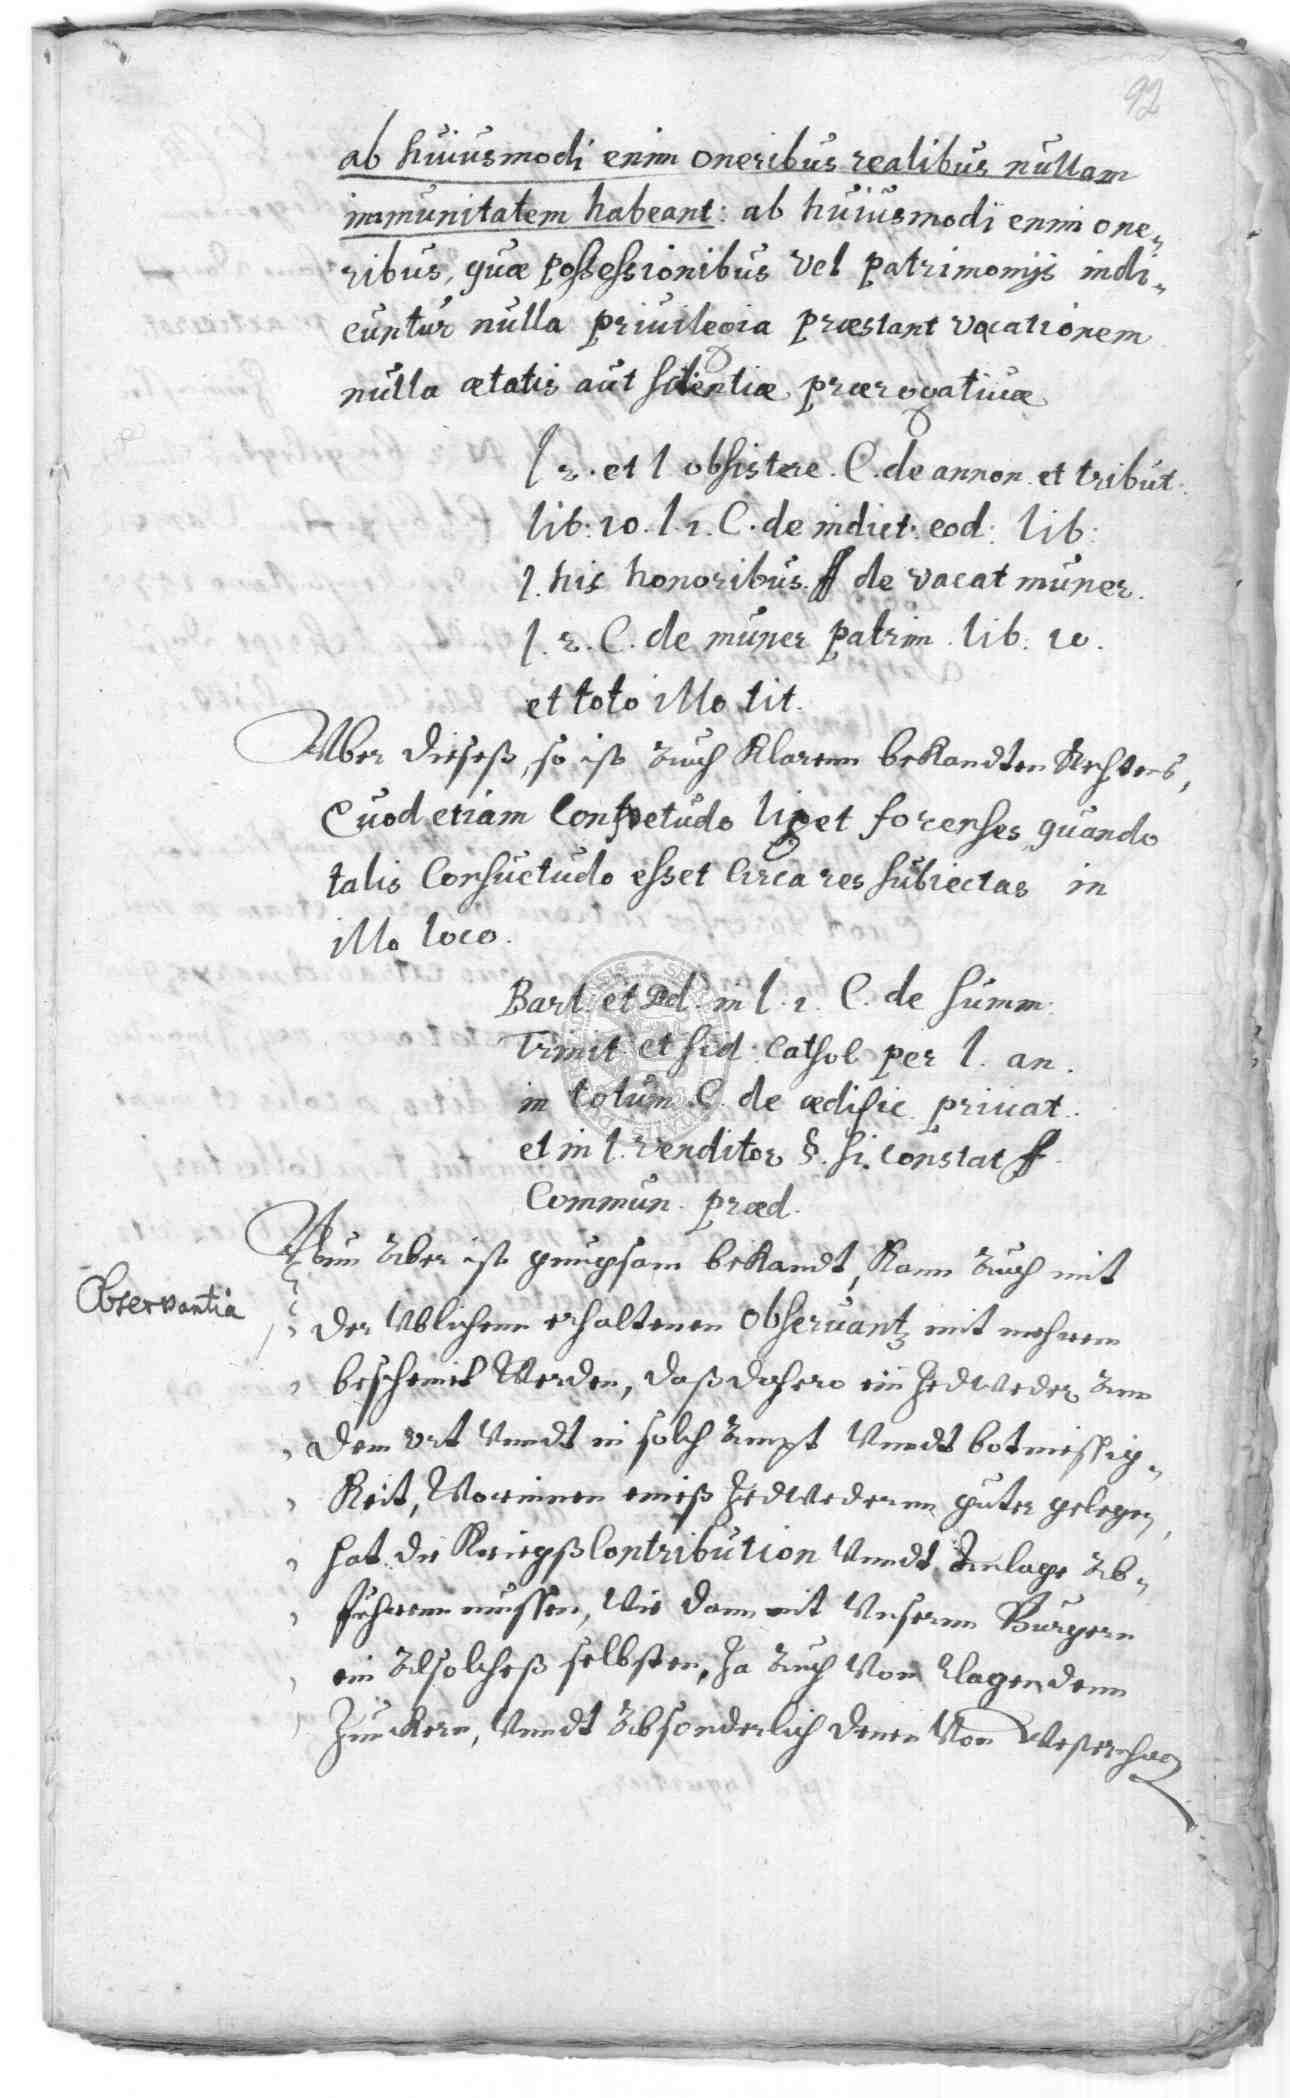 92
ab huiusmodi enim oneribus realibus nullam
immunitatem habeant: ab huiusmodi enim one„
ribus, quæ possessionibus vel patrimonijs indi„
cuntur nulla priuilegia præstant vacationem
nulla ætatis aut scientiæ prærogatiuæ
l 2. et l obsistere. C. de annon. et tribut.
lib: 10. l. 1. C. de indict: eod: lib:
l. his honoribus. ff de vacat muner.
l. 2. C. de muner patrim. lib: 10.
et toto illo tit.
Vber dieseß, so ist auch Klarenn bekandten Rechtens,
Quod etiam Consuetudo liget forenses, quando
talis Consuetudo esset circa res subiectas in
illo loco.
Bart. et Dd. in l. 1. C. de summ.
Trinit. et fid: cathol per l. an.
in totum. C. de ædific. priuat.
et in l. venditor §. si constat ff.
Commun. præd.
Nun aber ist gnugsam bekandt, kann auch mit
Observantia
der Vblichenn erhaltenen Observantz mit mehrem
bescheinet werden, daß dahero ein Jedweder ann
dem ort vnndt in solch Ampt vnndt botmessig„
keit, Worinnen eineß Jedwedernn guter gelegen,
hat die KriegßContribution vnndt Anlage ab„
führenn müssen, Wie dann mit Vnsernn Burgern
ein alsolcheß selbsten, Ja auch von Clagendenn
Junckern, vnndt absonderlich denen von Westernhag